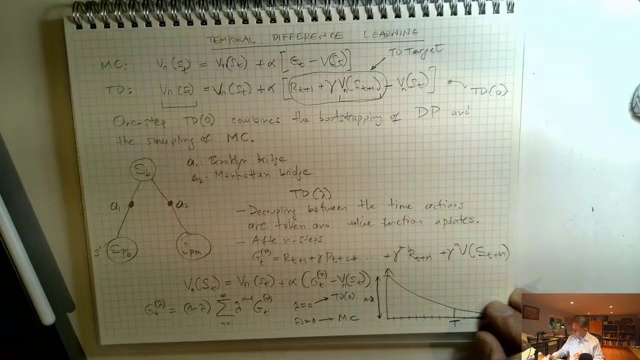 TEMPORAL DIFFERENCE LEARNING
MC: Vπ(St) = Vπ(St) + α [Gt - V(St)]
TO Target
TD: Vπ(St) = Vπ(St) + α [Rt+1 + γVπ(St+1) - Vπ(St)]
TD(0)
One-step TD(0) combines the bootstrapping of DP and
the sampling of MC.
a1: Brooklyn bridge
a2: Manhattan bridge
S0
a1
a2
S'
TD(λ)
- Decoupling between the time actions
are taken and value function updates.
- After n-steps
+ γ^n V(St+n)
λ=0 → TD(0)
→ MC
T